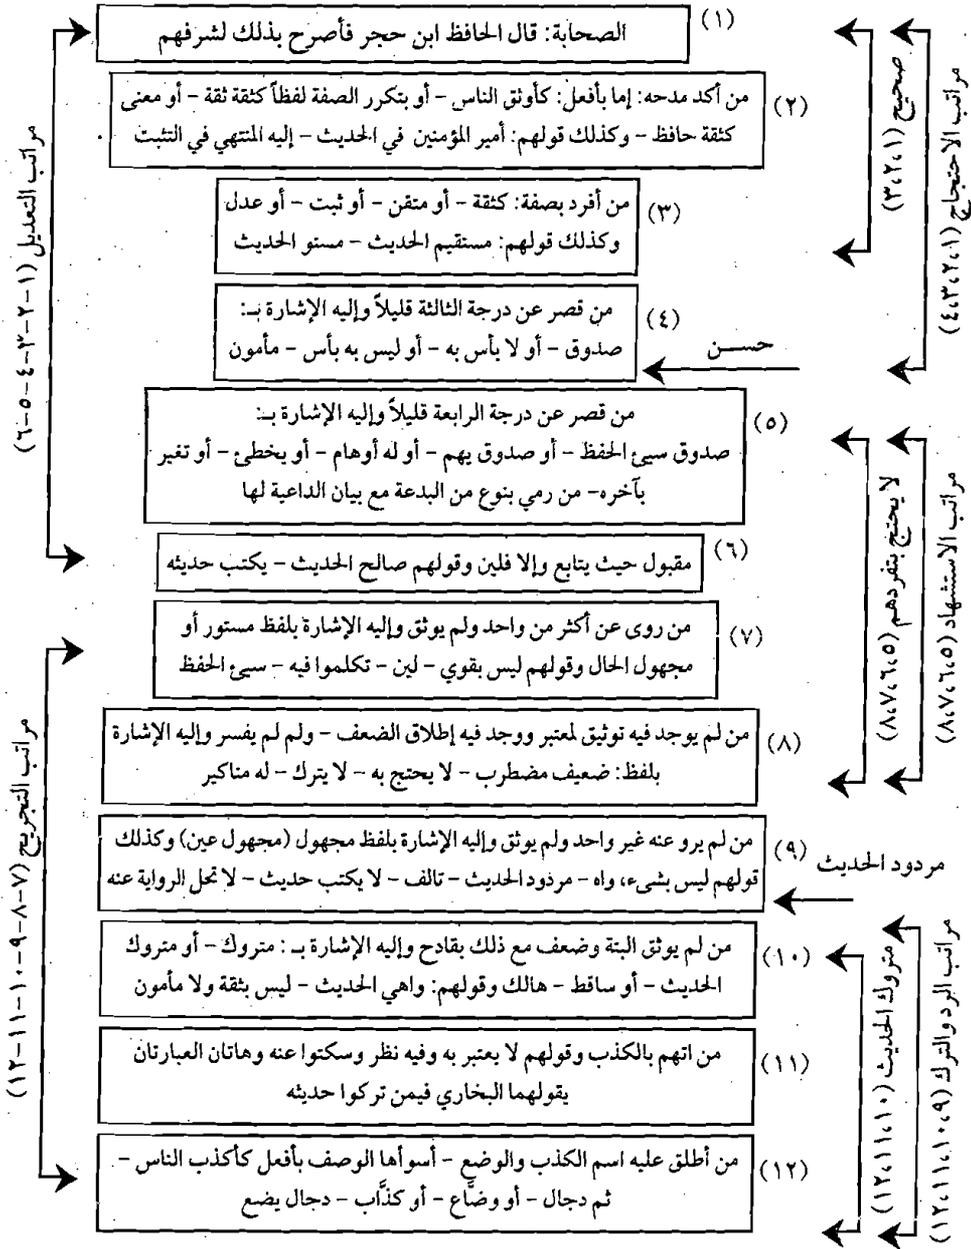 (١) الصحابة: قال الحافظ ابن حجر فأصرح بذلك لشرفهم
(٢) من أكد مدحه: إما بأفعل: كأوثق الناس – أو بتكرر الصفة لفظاً كثقة ثقة – أو معنى
كثقة حافظ – وكذلك قولهم: أمير المؤمنين في الحديث – إليه المنتهي في التثبت
(٣) من أفرد بصفة: كثقة – أو متقن – أو ثبت – أو عدل
وكذلك قولهم: مستقيم الحديث – مستو الحديث
(٤) من قصر عن درجة الثالثة قليلاً وإليه الإشارة بـ:
صدوق – أو لا بأس به – أو ليس به بأس – مأمون
حسن
(٥) من قصر عن درجة الرابعة قليلاً وإليه الإشارة بـ:
صدوق سيئ الحفظ – أو صدوق يهم – أو له أوهام – أو يخطئ – أو تغير
بآخره– من رمي بنوع من البدعة مع بيان الداعية لها
(٦) مقبول حيث يتابع وإلا فلين وقولهم صالح الحديث – يكتب حديثه
(٧) من روى عن أكثر من واحد ولم يوثق وإليه الإشارة بلفظ مستور أو
مجهول الحال وقولهم ليس بقوي – لين – تكلموا فيه – سيئ الحفظ
(٨) من لم يوجد فيه توثيق لمعتبر ووجد فيه إطلاق الضعف – ولم لم يفسر وإليه الإشارة
بلفظ: ضعيف مضطرب – لا يحتج به – لا يترك – له مناكير
(٩) من لم يرو عنه غير واحد ولم يوثق وإليه الإشارة بلفظ مجهول (مجهول عين) وكذلك
قولهم ليس بشيء، واه – مردود الحديث – تالف – لا يكتب حديث – لا تحل الرواية عنه
مردود الحديث
(١٠) من لم يوثق البتة وضعف مع ذلك بقادح وإليه الإشارة بـ : متروك – أو متروك
الحديث – أو ساقط – هالك وقولهم: واهي الحديث – ليس بثقة ولا مأمون
(١١) من اتهم بالكذب وقولهم لا يعتبر به وفيه نظر وسكتوا عنه وهاتان العبارتان
يقولهما البخاري فيمن تركوا حديثه
(١٢) من أطلق عليه اسم الكذب والوضع – أسوأها الوصف بأفعل كأكذب الناس –
ثم دجال – أو وضَّاع – أو كذَّاب – دجال يضع
مراتب الاحتجاج (٤،٣،٢،١)
صحيح (٣،٢،١)
مراتب الاستشهاد (٨،٧،٦،٥)
لا يحتج بتفردهم (٨،٧،٦،٥)
مراتب الرد والترك (١٢،١١،١٠،٩)
متروك الحديث (١٢،١١،١٠)
مراتب التعديل (١–٢–٣–٤–٥–٦)
مراتب التجريح (٧–٨–٩–١٠–١١–١٢)